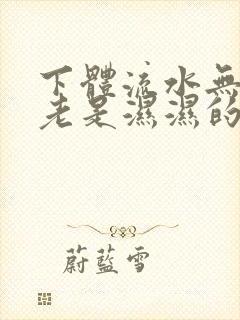 下體流水無
老是濕濕的
蔚藍雪